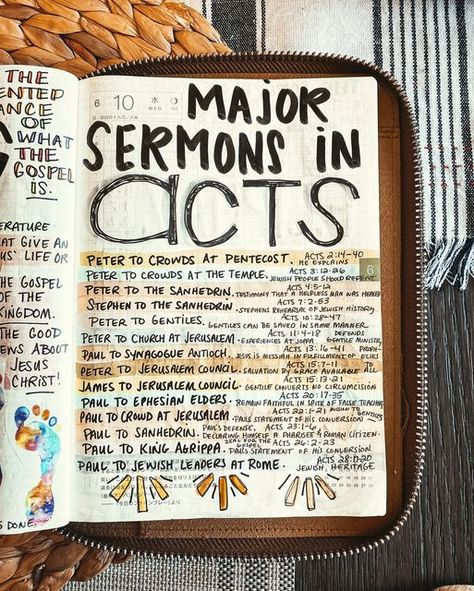 THE
ENTED
ANCE
OF
WHAT
THE
GOSPEL
IS.
ERATURE
AT GIVE AN
US' LIFE OR
THE GOSPEL
OF THE
KINGDOM.
THE GOOD
NEWS ABOUT
JESUS
CHRIST!
S DONE.
6 10 水
WED
MAJOR
SERMONS IN
ACTS
6
PETER TO CROWDS AT PENTECOST. ACTS 2:14-40 HE EXPLAINS
PETER TO CROWDS AT THE TEMPLE. ACTS 3:12-26 JEWISH PEOPLE SHOULD REPENT
PETER TO THE SANHEDRIN. ACTS 4:5-12 TESTIMONY THAT A HELPLESS MAN WAS HEALED
STEPHEN TO THE SANHEDRIN. ACTS 7:2-53 STEPHENS REHEARSAL OF JEWISH HISTORY
PETER TO GENTILES. ACTS 10:28-47 GENTILES CAN BE SAVED IN SAME MANNER
PETER TO CHURCH AT JERUSALEM. ACTS 11:4-18 DEFENDS -EXPERIENCES AT JOPPA GENTILE MINISTRY
PAUL TO SYNAGOGUE ANTIOCH. ACTS 13:16-41 JESUS IS MESSIAH IN FULFILLMENT OF
PETER TO JERUSALEM COUNCIL. ACTS 15:7-11 TO SALVATION BY GRACE AVAILABLE ALL
JAMES TO JERUSALEM COUNCIL. ACTS 15:13-21 GENTILE CONVERTS NO CIRCUMCISION
PAUL TO EPHESIAN ELDERS. ACTS 20:17-35 REMAIN FAITHFUL IN SPITE OF FALSE TEACHER
PAUL TO CROWD AT JERUSALEM. ACTS 22:1-21 MISSION TO GENTILES PAULS STATEMENT OF HIS CONVERSION
PAUL TO SANHEDRIN. PAUL'S DEFENSE, ACTS 23:1-6 DECLARING HIMSELF A PHARISEE & ROMAN CITIZEN
PAUL TO KING AGRIPPA. ZEAL FOR THE GOSPEL ACTS 26:2-23 PAULS STATEMENT OF HIS CONVERSION
PAUL TO JEWISH LEADERS AT ROME. ACTS 28:17-20 JEWISH HERITAGE